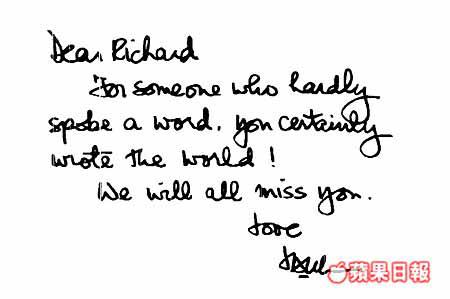 Dear Richard
For someone who hardly
spoke a word, you certainly
wrote the world!
We will all miss you.
Love
蘋果日報